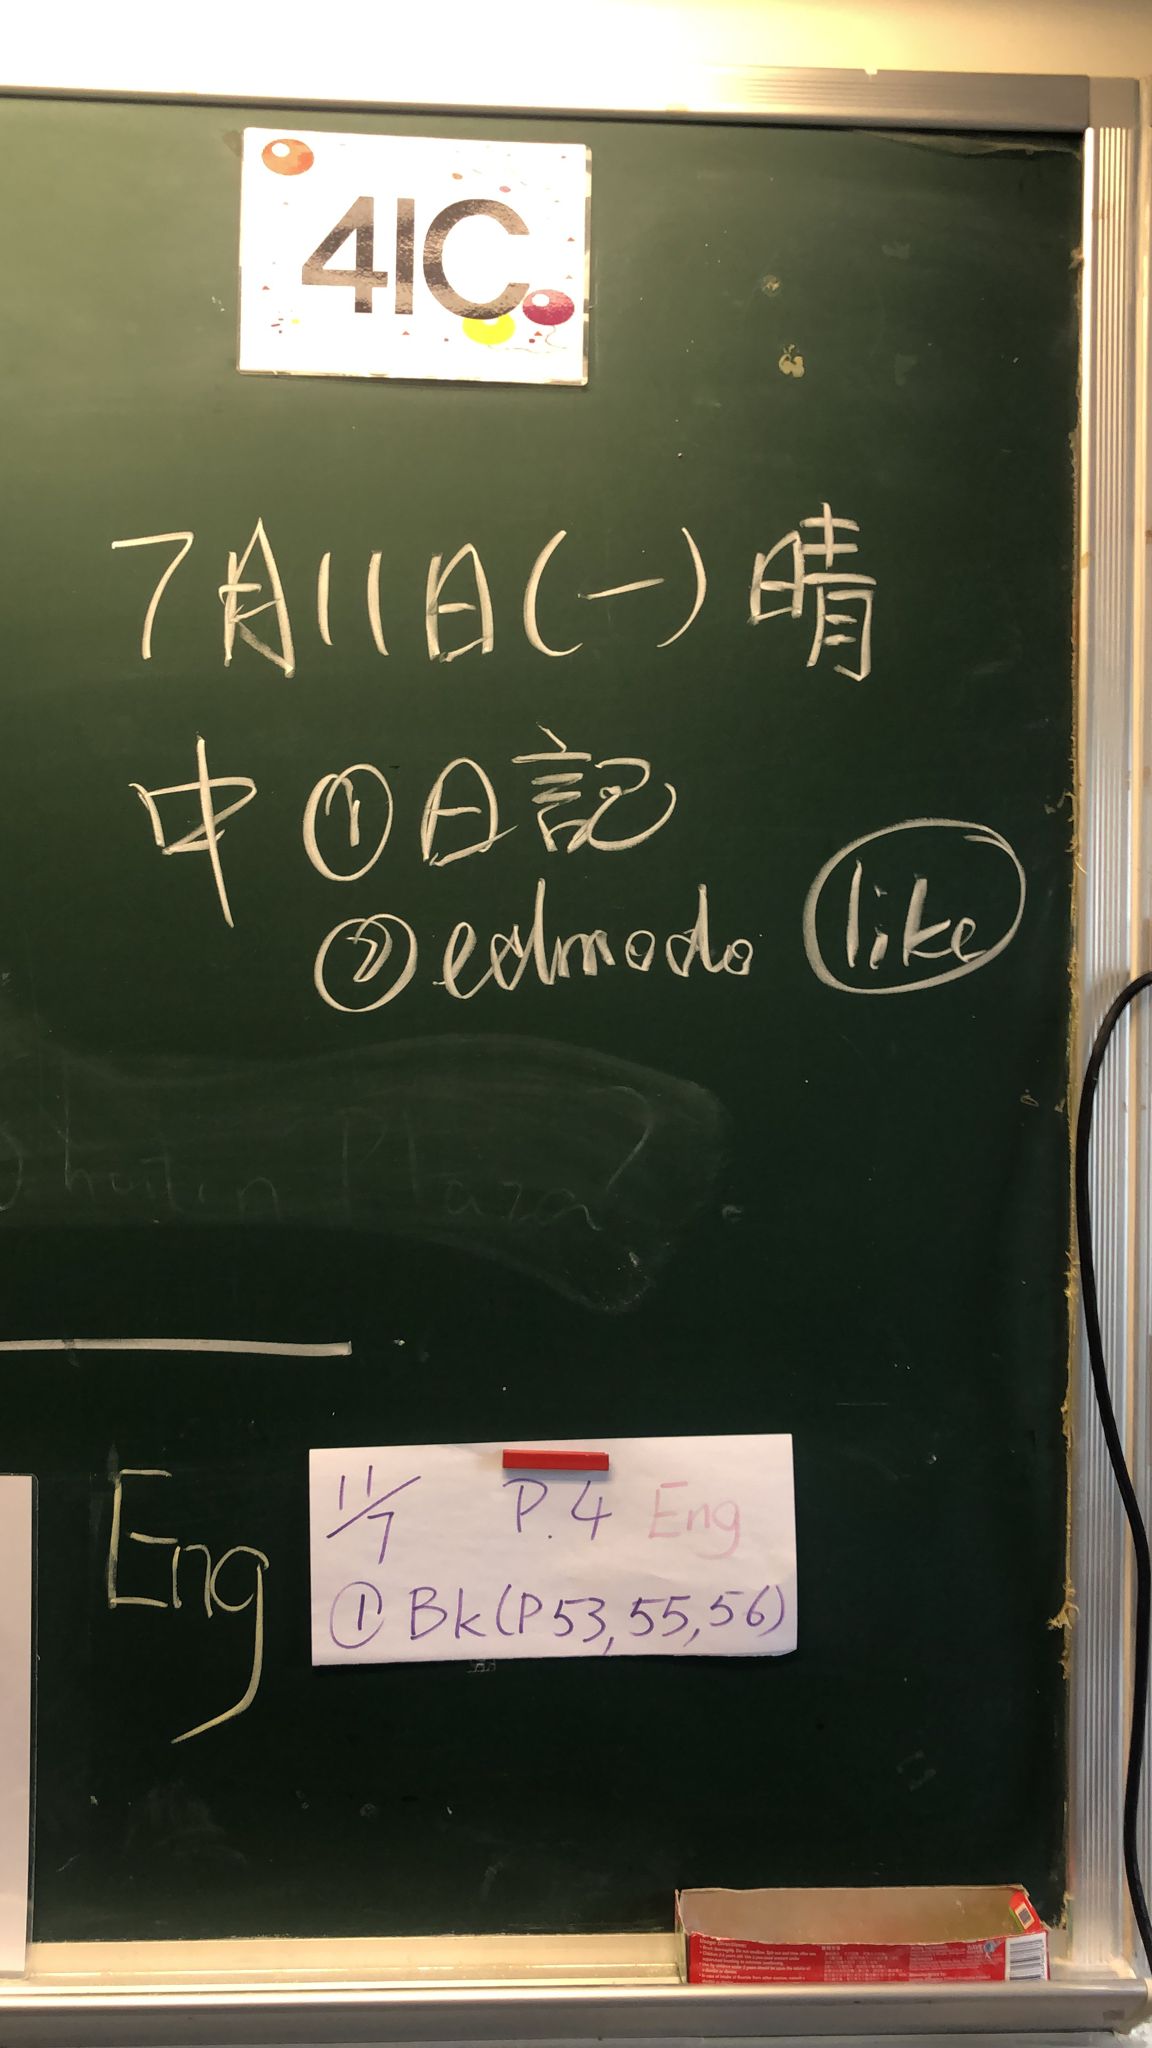 4IC
7月11日(一)晴
中 ① 日記
② edmodo like
Plaza?
Eng
11/7 P.4 Eng
① Bk(P53,55,56)
Usage Directions: